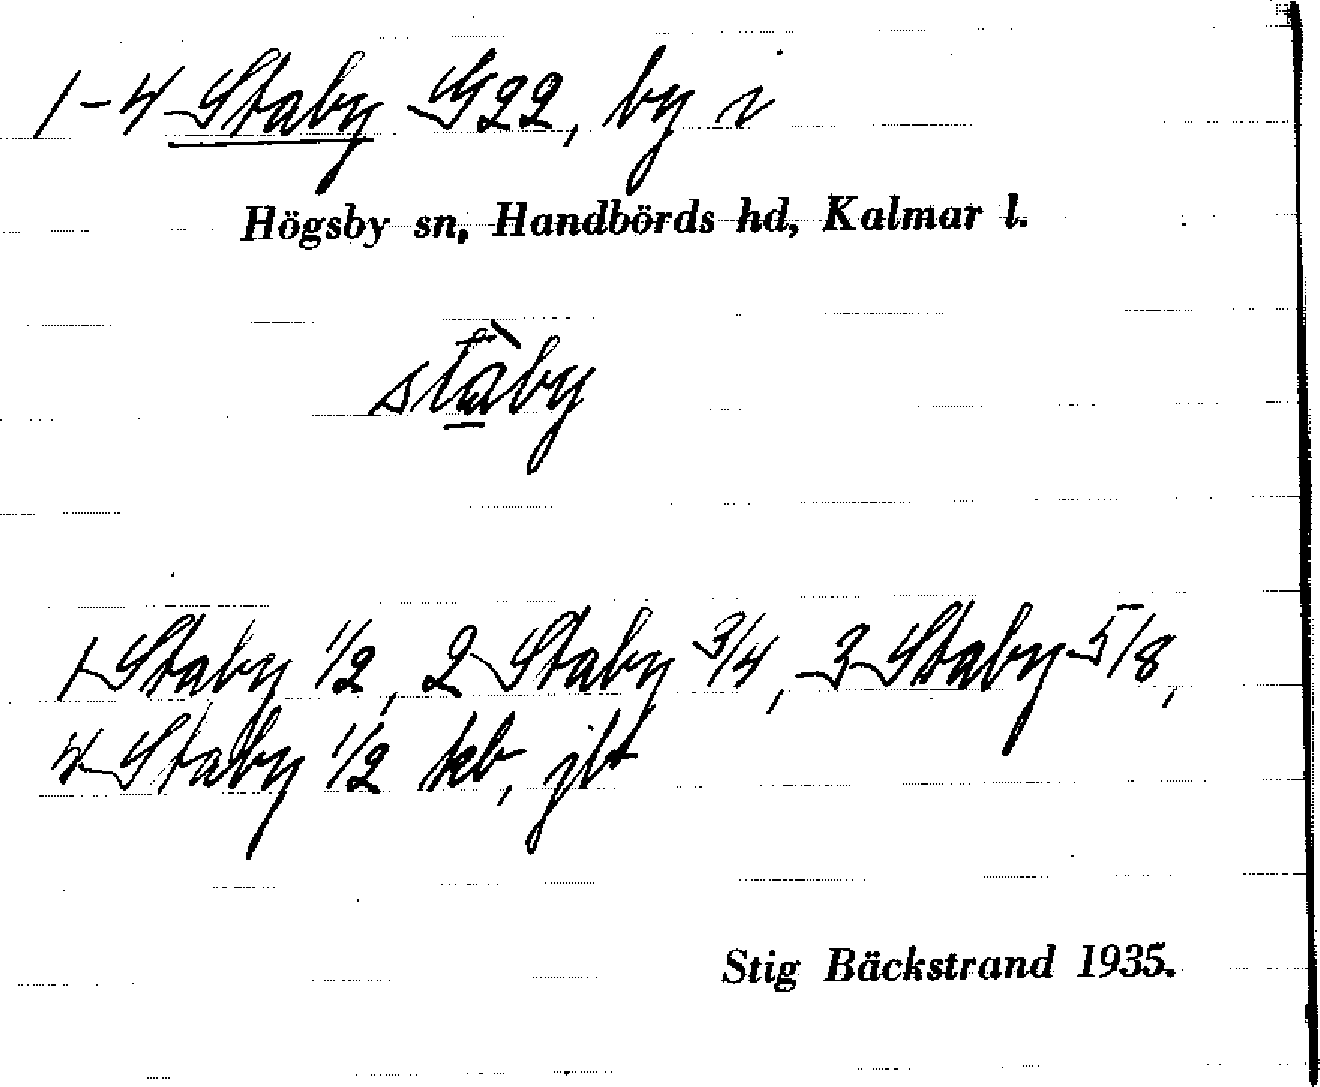 1-4 Staby G22, by i
Högsby sn, Handbörds hd, Kalmar l.
stàby
1 Staby 1/2, 2 Staby 3/4, 3 Staby 5/8,
4 Staby 1/2 kb, jbt
Stig Bäckstrand 1935.